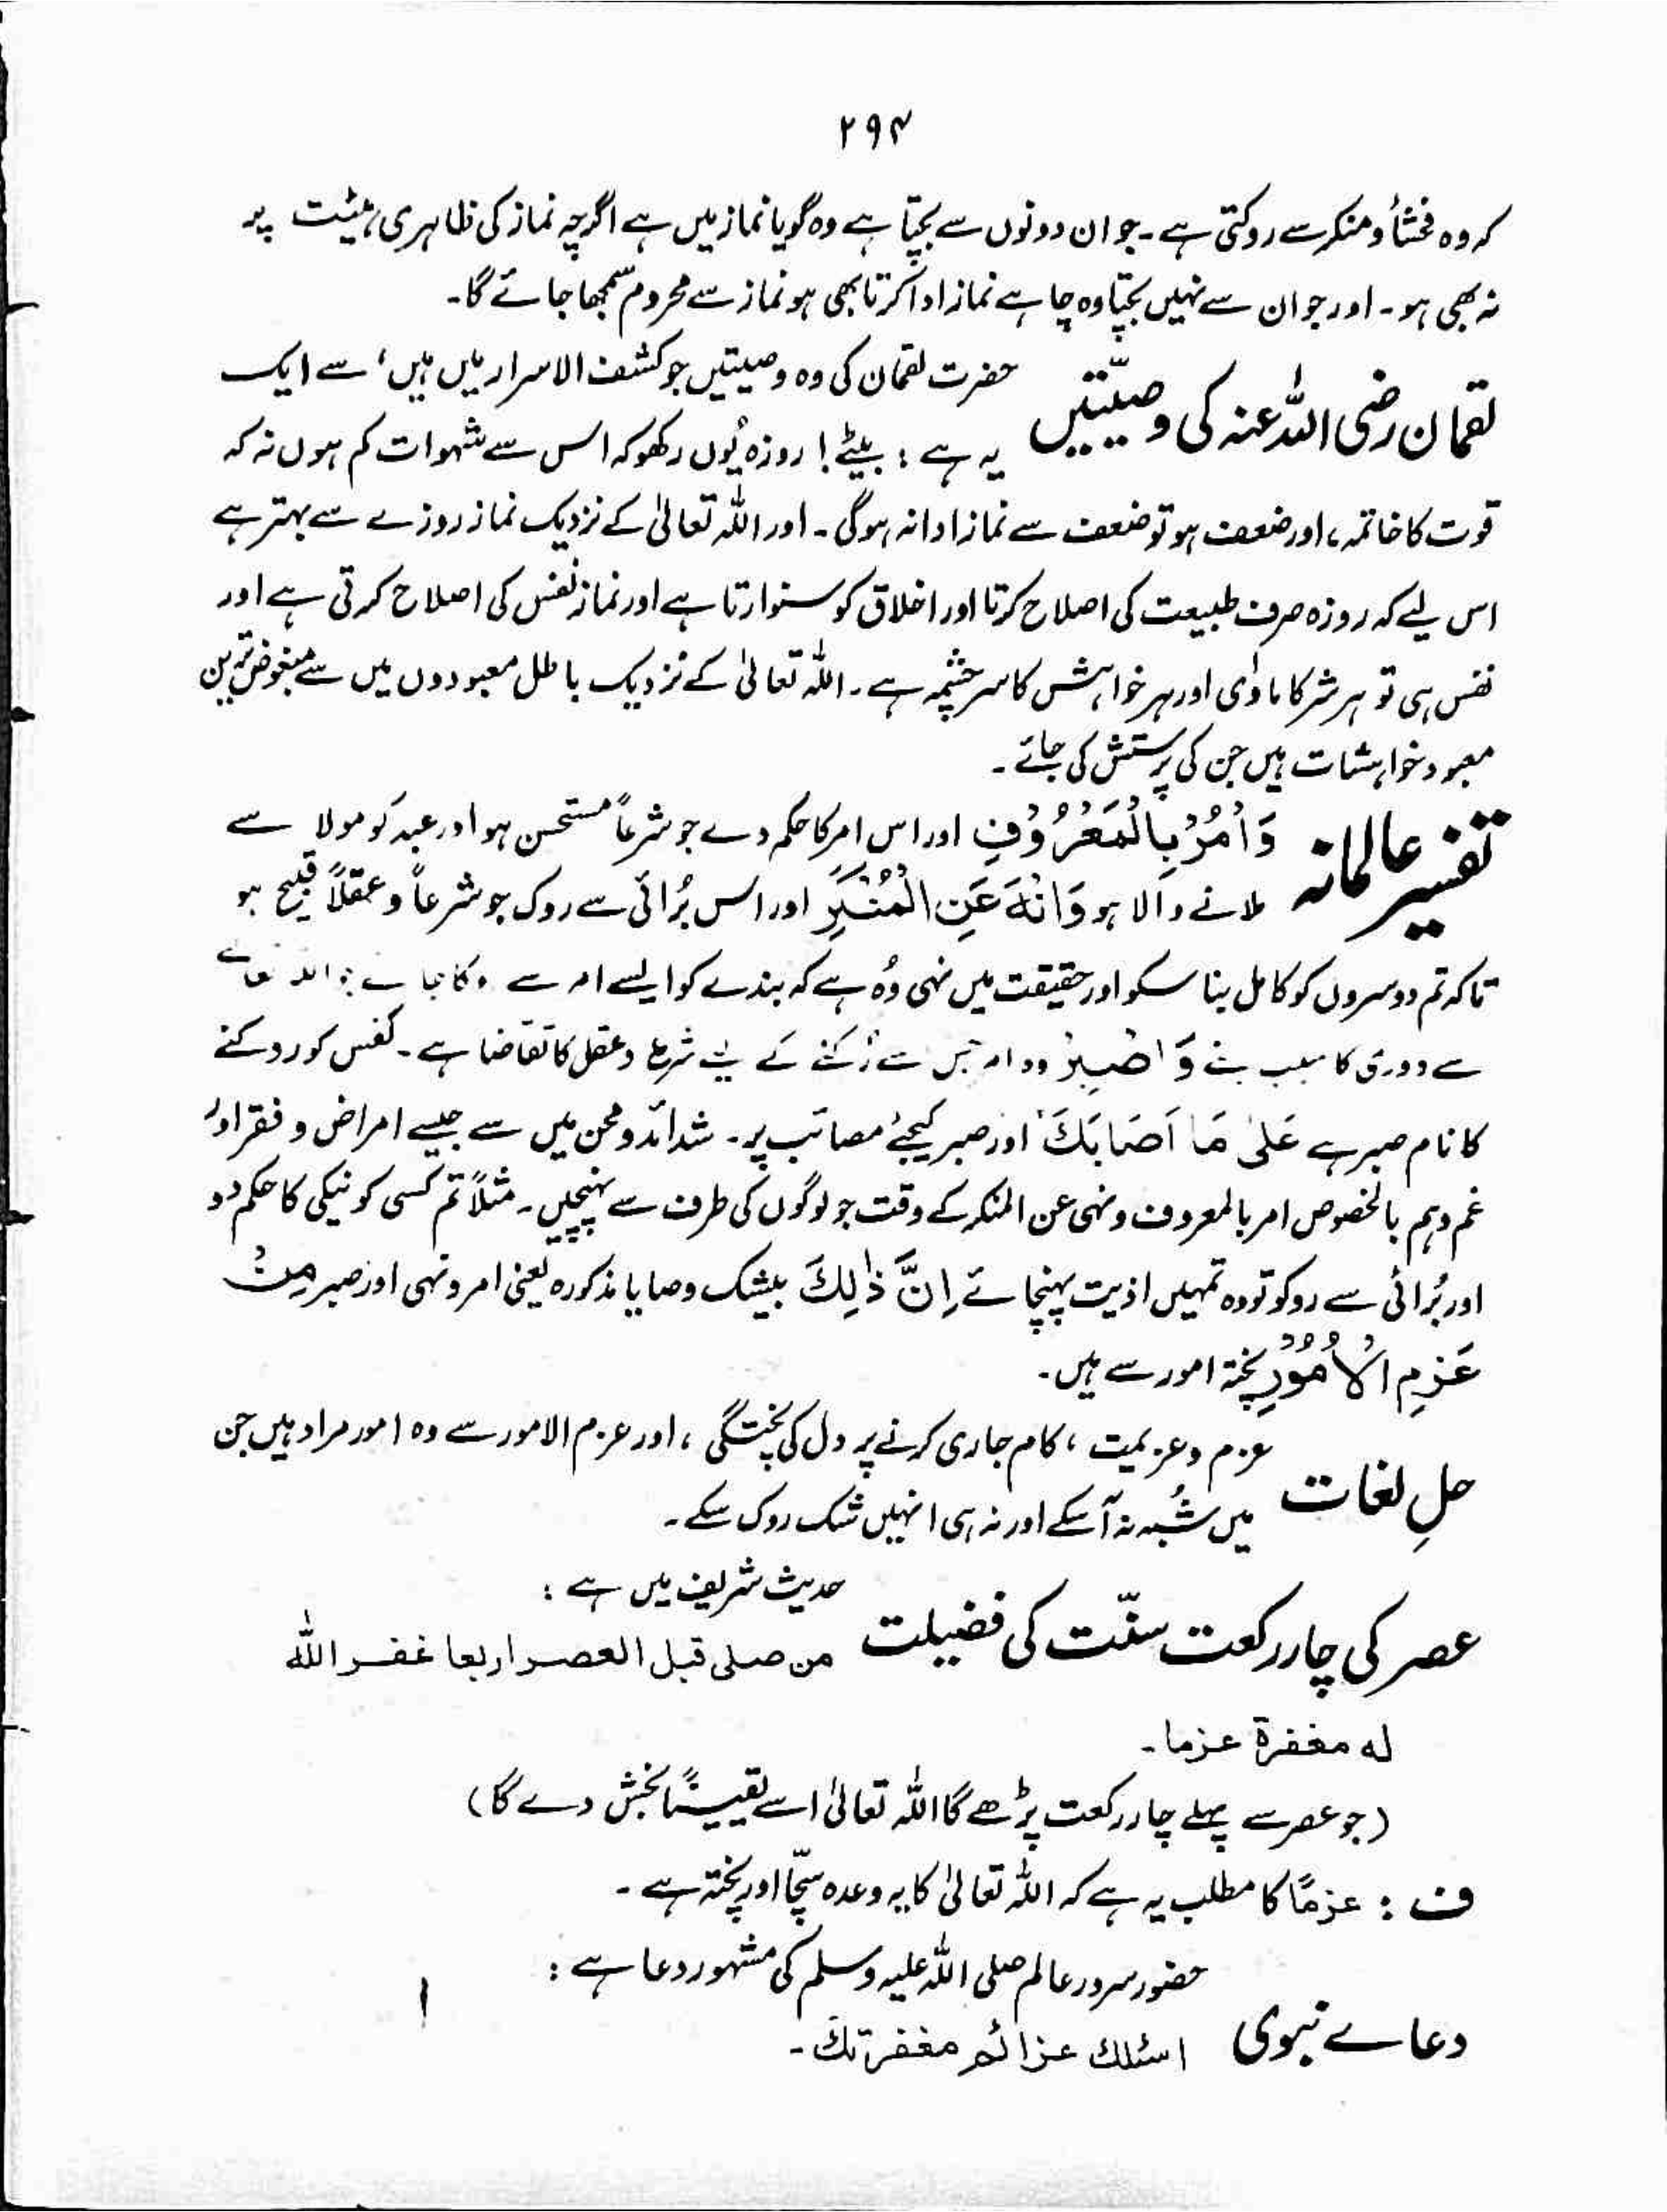 ۲۹۴
کہ وہ فحشاً و منکر سے روکتی ہے۔ جو ان دونوں سے بچتا ہے وہ گویا نماز میں ہے اگرچہ نماز کی ظاہری ہیئت پر
نہ بھی ہو۔ اور جو ان سے نہیں بچتا وہ چاہے نماز ادا کرتا بھی ہو نماز سے محروم سمجھا جائے گا۔
لقمان رضی اللہ عنہ کی وصیّتیں حضرت لقمان کی وہ وصیتیں جو کشف الاسرار میں ہیں، سے ایک
یہ ہے : بیٹے! روزہ یُوں رکھو کہ اس سے شہوات کم ہوں نہ کہ
قوت کا خاتمہ، اور ضعف ہو تو ضعف سے نماز ادا نہ ہوگی۔ اور اللہ تعالیٰ کے نزدیک نماز روزے سے بہتر ہے
اس لیے کہ روزہ صرف طبیعت کی اصلاح کرتا اور اخلاق کو سنوارتا ہے اور نماز نفس کی اصلاح کرتی ہے اور
نفس ہی تو ہر شر کا ماوٰی اور ہر خواہش کا سرچشمہ ہے۔ اللہ تعالیٰ کے نزدیک باطل معبودوں میں سے مبغوض ترین
معبود خواہشات ہیں جن کی پرستش کی جائے۔
تفسیر عالمانہ وَأْمُرْ بِالْمَعْرُوْفِ اور اس امر کا حکم دے جو شرعاً مستحسن ہو اور عبد کو مولا سے
ملانے والا ہو وَانْهَ عَنِ الْمُنْكَرِ اور اس بُرائی سے روک جو شرعاً و عقلاً قبیح ہو
تاکہ تم دوسروں کو کامل بنا سکو اور حقیقت میں نہی وُہ ہے کہ بندے کو ایسے امر سے روکا جائے جو اللہ تعالے
سے دوری کا سبب بنے وَاصْبِرْ وہ امر جس سے رُکنے کے لیے شرع و عقل کا تقاضا ہے۔ نفس کو روکنے
کا نام صبر ہے عَلٰی مَا اَصَابَكَ اور صبر کیجئے مصائب پر۔ شدائد و محن میں سے جیسے امراض و فقر اور
غم و ہم بالخصوص امر بالمعروف و نہی عن المنکر کے وقت جو لوگوں کی طرف سے پہنچیں۔ مثلاً تم کسی کو نیکی کا حکم دو
اور بُرائی سے روکو تو وہ تمہیں اذیت پہنچائے اِنَّ ذٰلِكَ بیشک وصایا مذکورہ یعنی امر و نہی اور صبر مِنْ
عَزْمِ الْاُمُوْرِ پختہ امور سے ہیں۔
حلِ لغات عزم و عزیمت، کام جاری کرنے پر دل کی پختگی، اور عزم الامور سے وہ امور مراد ہیں جن
میں شُبہ نہ آسکے اور نہ ہی انہیں شک روک سکے۔
عصر کی چار رکعت سنّت کی فضیلت حدیث شریف میں ہے :
من صلی قبل العصر اربعا غفر اللہ
له مغفرة عزما۔
(جو عصر سے پہلے چار رکعت پڑھے گا اللہ تعالیٰ اسے یقیناً بخش دے گا)
ف : عزماً کا مطلب یہ ہے کہ اللہ تعالیٰ کا یہ وعدہ سچّا اور پختہ ہے۔
دعاے نبوی حضور سرور عالم صلی اللہ علیہ وسلم کی مشہور دعا ہے :
اسئلك عزائم مغفرتك۔